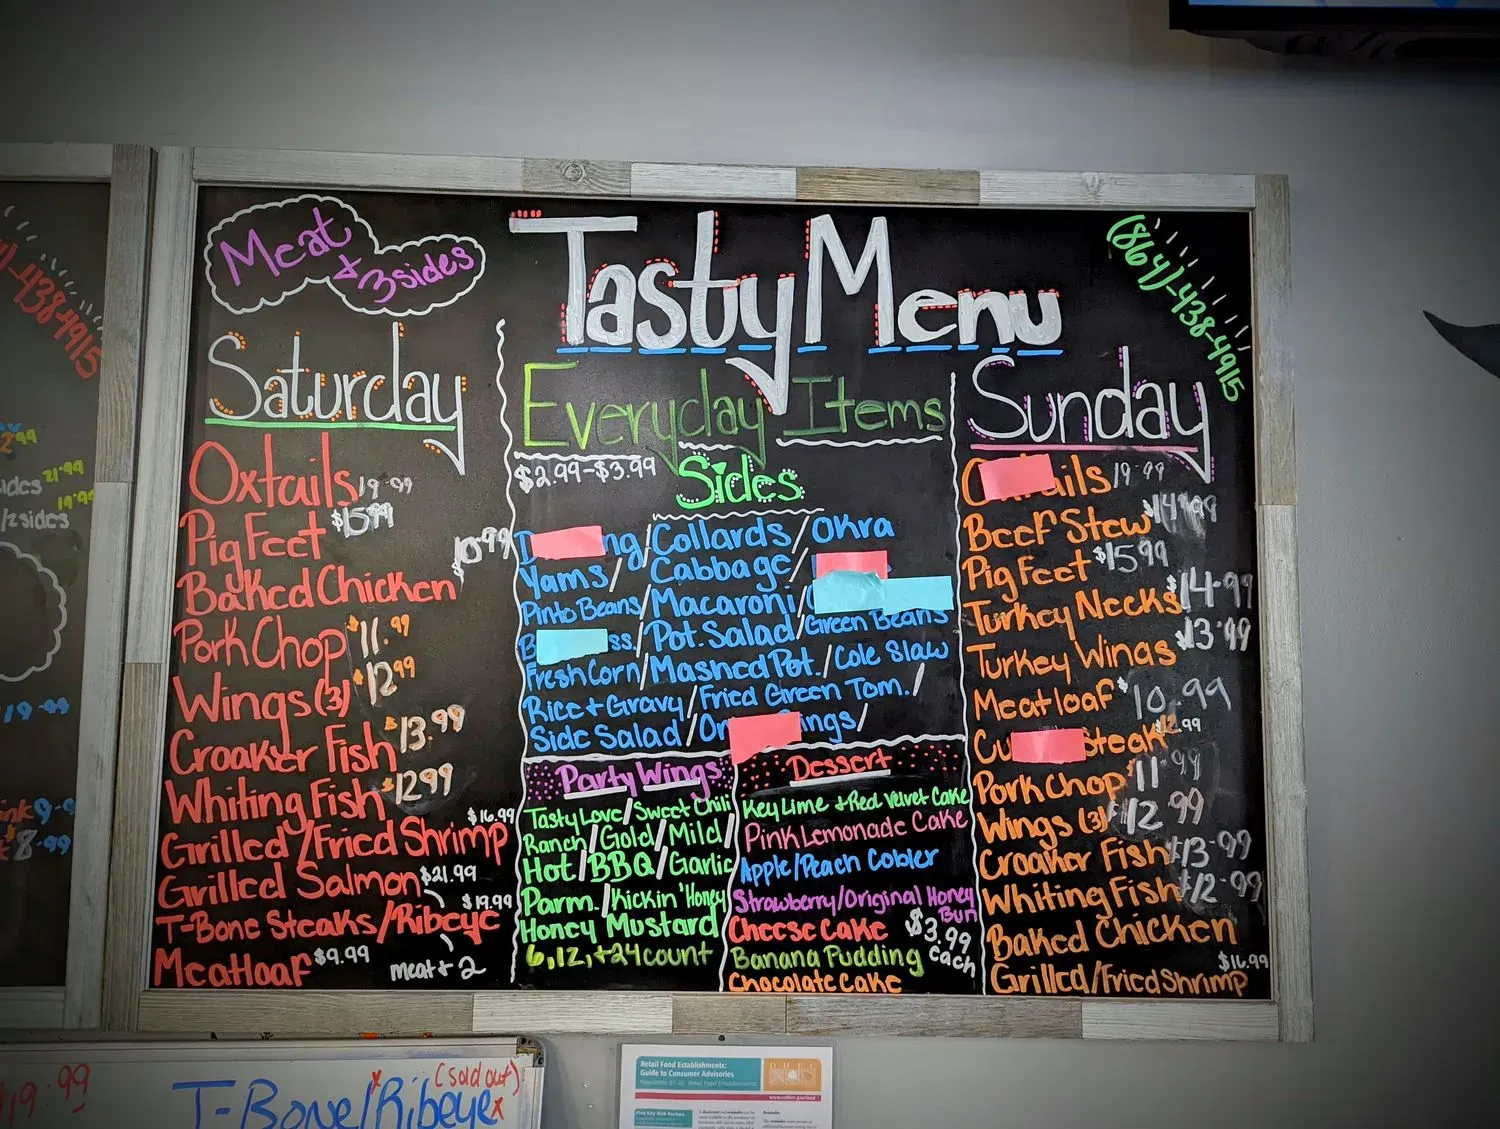 Meat
+ 3sides
Tasty Menu
(864)-438-4915
Saturday
Oxtails 19.99
Pig Feet $15.99
Baked Chicken $10.99
Pork Chop $11.99
Wings (3) $12.99
Croaker Fish $13.99
Whiting Fish $12.99
Grilled/Fried Shrimp $16.99
Grilled Salmon $21.99
T-Bone Steaks/Ribeye $19.99
Meatloaf $9.99
meat + 2
Everyday Items
$2.99-$3.99
Sides
ng/Collards/Okra
Yams/Cabbage/
Pinto Beans/Macaroni/
ss./Pot. Salad/Green Beans
Fresh Corn/Mashed Pot./Cole Slaw
Rice + Gravy/Fried Green Tom./
Side Salad/On ings/
Party Wings
Tasty Love/Sweet Chili
Ranch/Gold/Mild/
Hot/BBQ/Garlic
Parm./Kickin' Honey
Honey Mustard
6, 12, + 24 count
Dessert
Key Lime + Red Velvet Cake
Pink Lemonade Cake
Apple/Peach Cobler
Strawberry/Original Honey
Bun
Cheese Cake
Banana Pudding
Chocolate Cake
$3.99
each
Sunday
O ails 19.99
Beef Stew $14.99
Pig Feet $15.99
Turkey Necks $14.99
Turkey Wings $13.99
Meatloaf $10.99
Cu Steak $12.99
Pork Chop $11.99
Wings (3) $12.99
Croaker Fish $13.99
Whiting Fish $12.99
Baked Chicken
Grilled/Fried Shrimp $16.99
-438-4915
21.99
sides
19.99
/2sides
19.99
8.99
$19.99
T-Bone/Ribeye
(sold out)
Retail Food Establishments:
Guide to Consumer Advisories